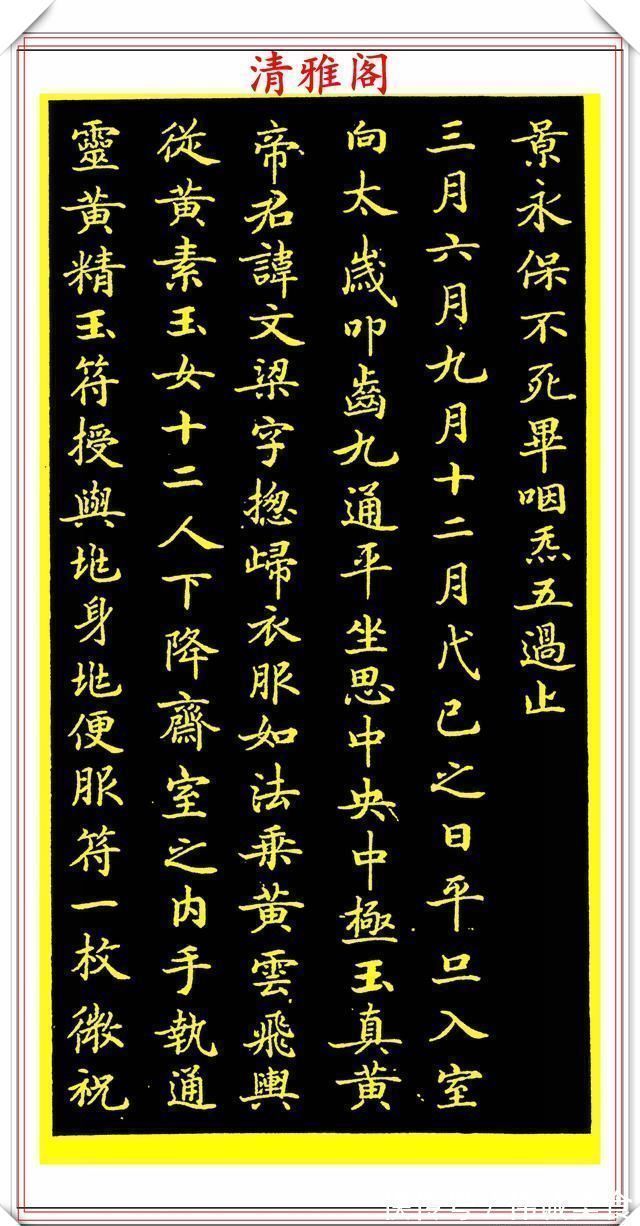 清雅阁
景永保不死畢咽炁五過止
三月六月九月十二月戊巳之日平旦入室
向太歲叩齒九通平坐思中央中極玉真黃
帝君諱文梁字揔歸衣服如法乘黃雲飛輿
從黃素玉女十二人下降齋室之内手執通
靈黃精玉符授與地身地便服符一枚微祝